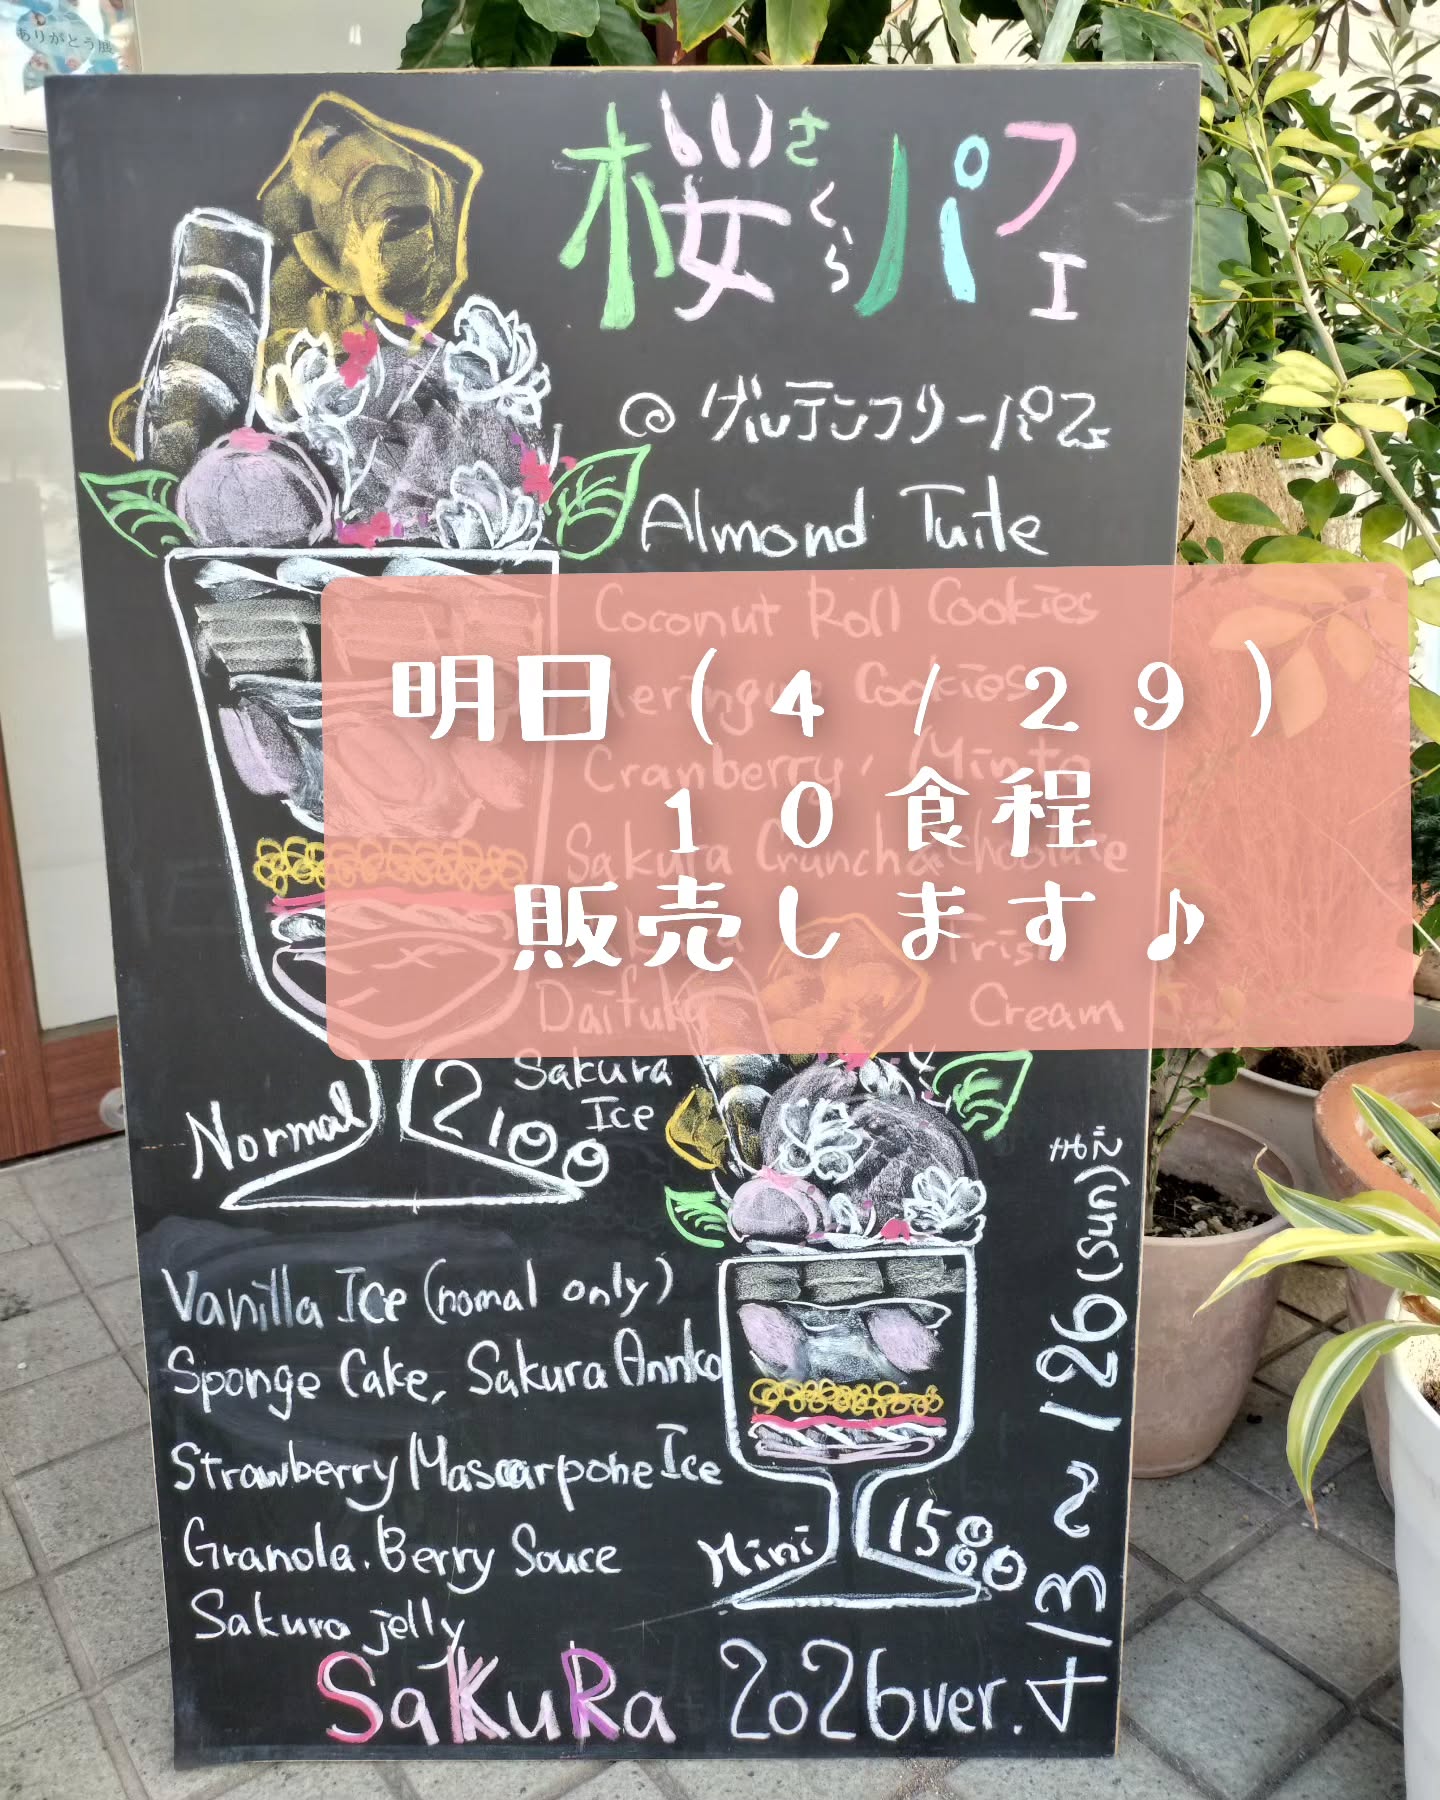 ありがとう展
桜さくらパフェ
@グルテンフリーパフェ
Almond Tuile
Coconut Roll Cookies
Meringue Cookies
Cranberry, Minto
Sakura Crunch & Chocolate
Daifuku
Cream
明日(4/29)
10食程
販売します♪
Sakura
Ice
Normal 2100
Vanilla Ice (nomal only)
Sponge Cake, Sakura Annko
Strawberry Mascarpone Ice
Granola. Berry Souce
Sakura jelly
Mini 1500
4/3〜/26(Sun)まで
SaKuRa 2026ver.